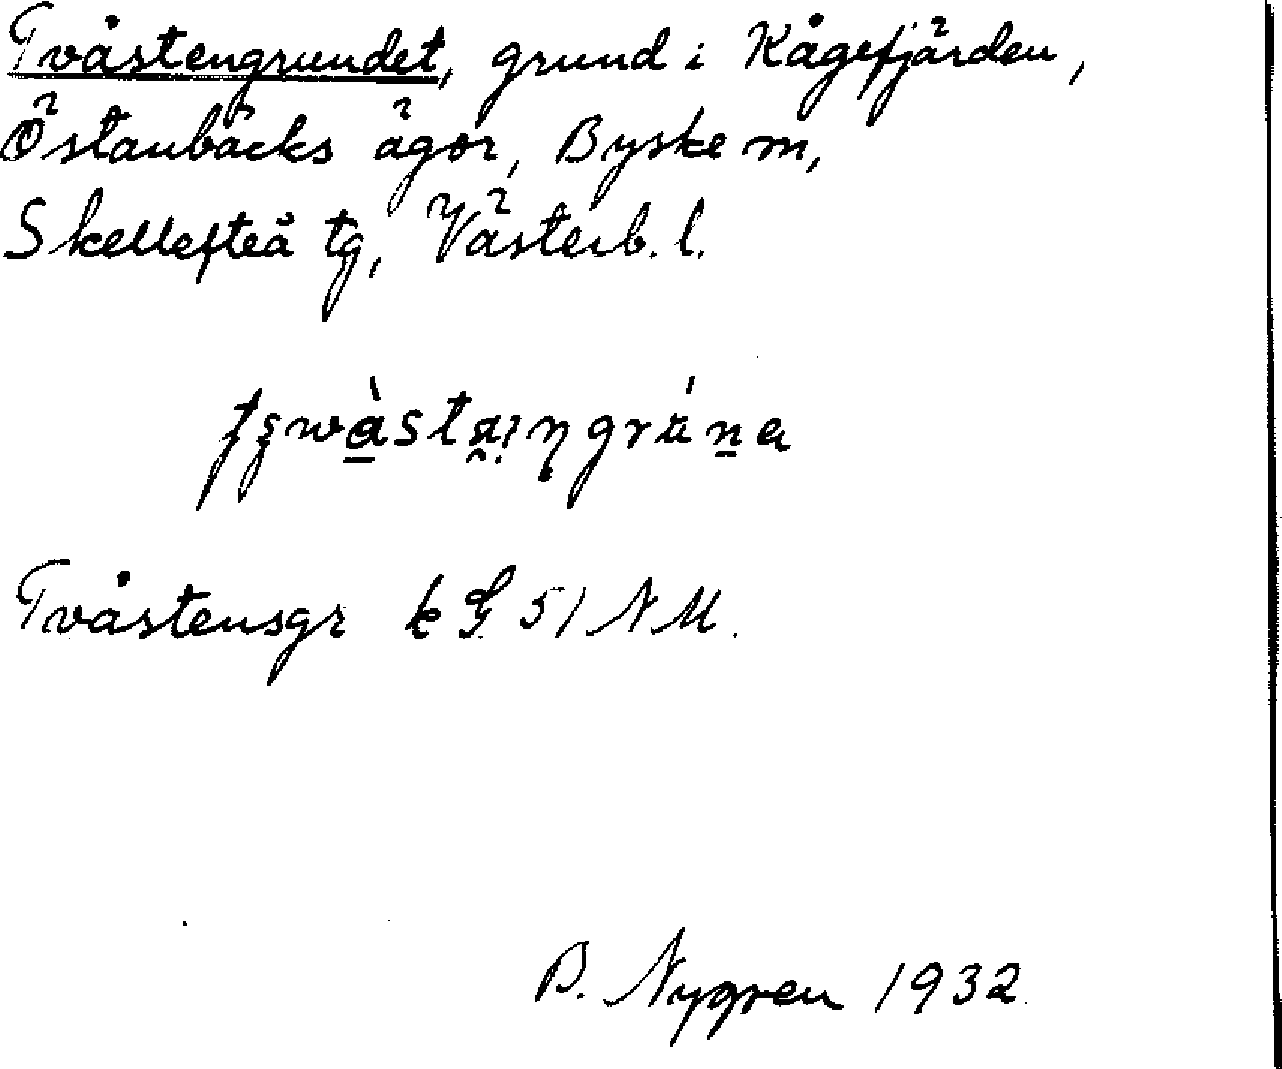 Tvåstengrundet, grund i Kågefjärden,
Östanbäcks ägor, Byske sn,
Skellefteå tg, Västerb. l.
Tvåstensgr k 51 NM.
B. Nygren 1932